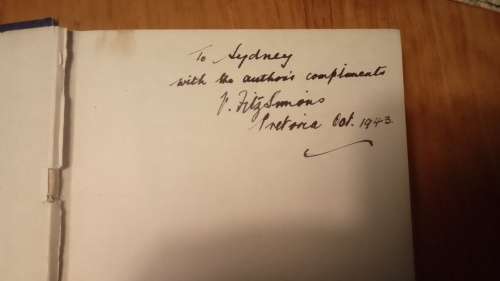 To Sydney
with the author's compliments
V. FitzSimons
Pretoria Oct. 1943.